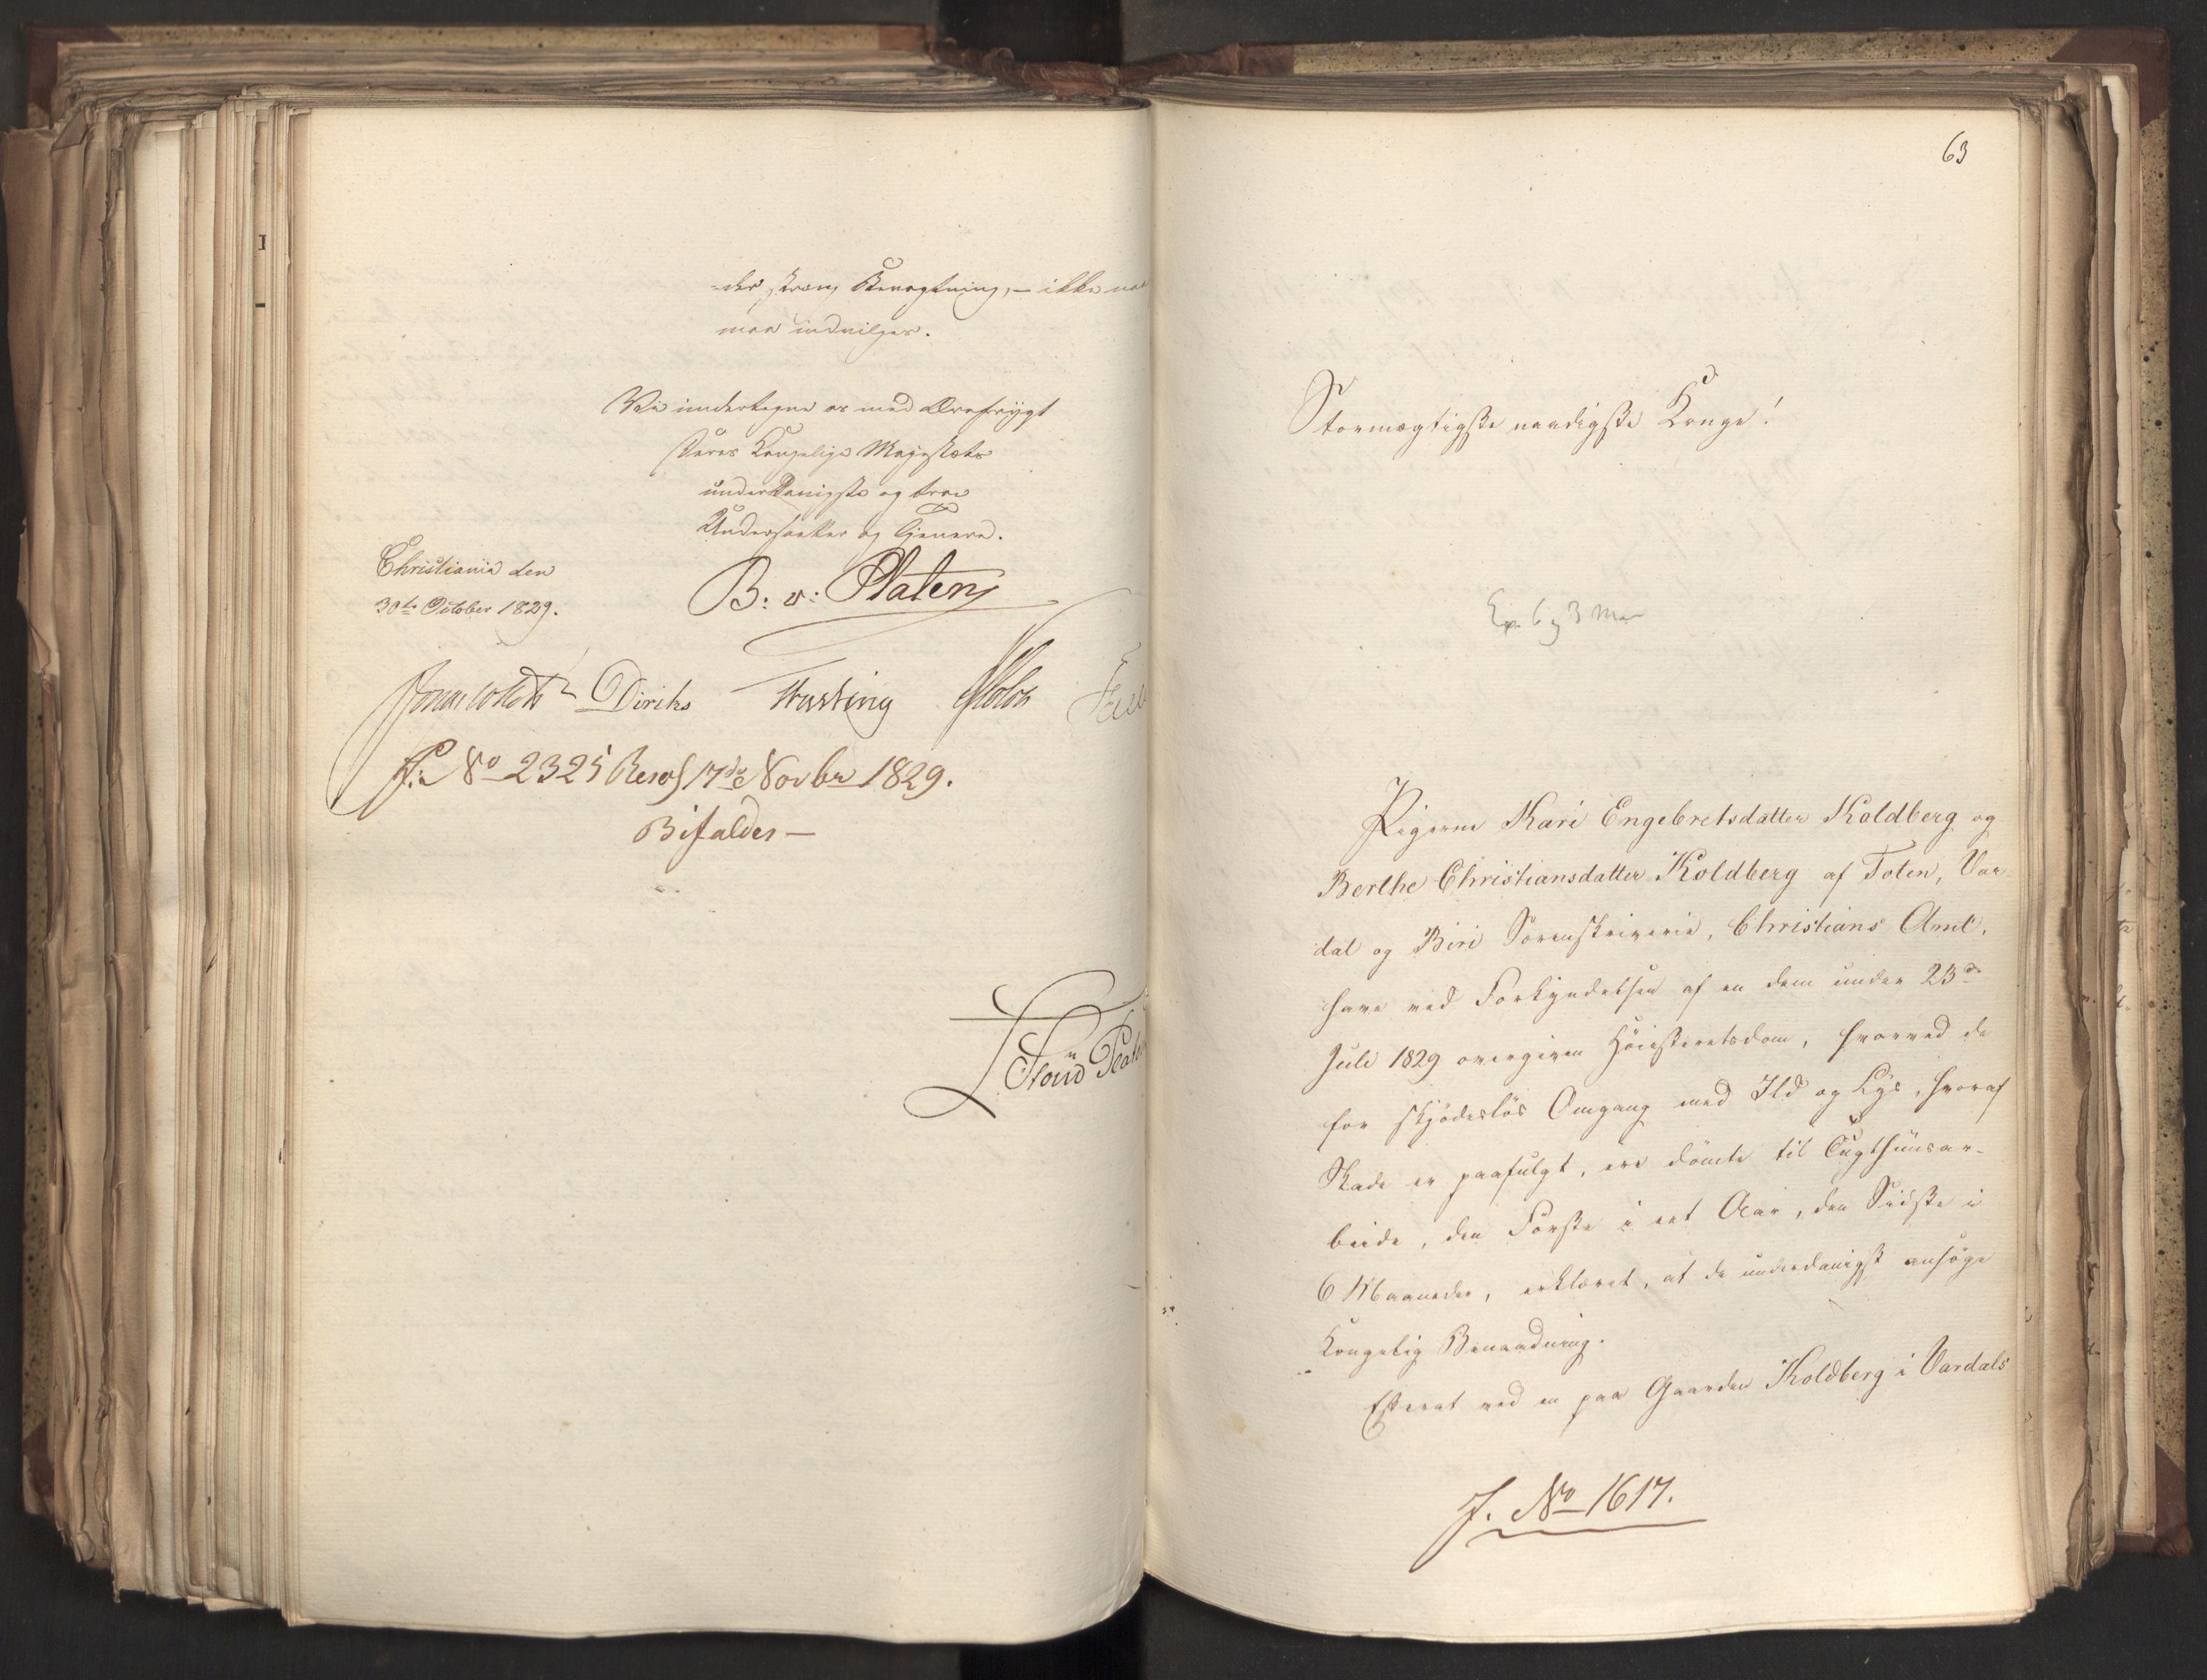 -der streng Bevogtning, – ikke
maa indvilges.
Vi undertegne os med Ærefrygt
Deres Kongelige Majestæts
underdanigste og troe
Undersaatter og Tjenere.
Christiania den
30te October 1829.
B: v: Platen
Jonas Collett Diriks Fasting Holst
J: No 2325 Resol 17de Novbr 1829.
Bifaldes –
63
Stormægtigste naadigste Konge!
Pigerne Kari Engebretsdatter Koldberg og
Berthe Christiansdatter Koldberg af Toten, Var-
dal og Biri Sorenskriverie, Christians Amt,
have ved Forkyndelsen af en dem under 23de
Juli 1829 overgiven Höiesteretsdom, hvorved de
for skjödeslös Omgang med Ild og Lys, hvoraf
Skade er paafulgt, ere dömte til Tugthuusar-
beide, den Förste i eet Aar, den Sidste i
6 Maaneder, erklæret, at de underdanigst ansöge
Kongelig Benaadning.
Efterat ved en paa Gaarden Koldberg i Vardals
J. No 1617.